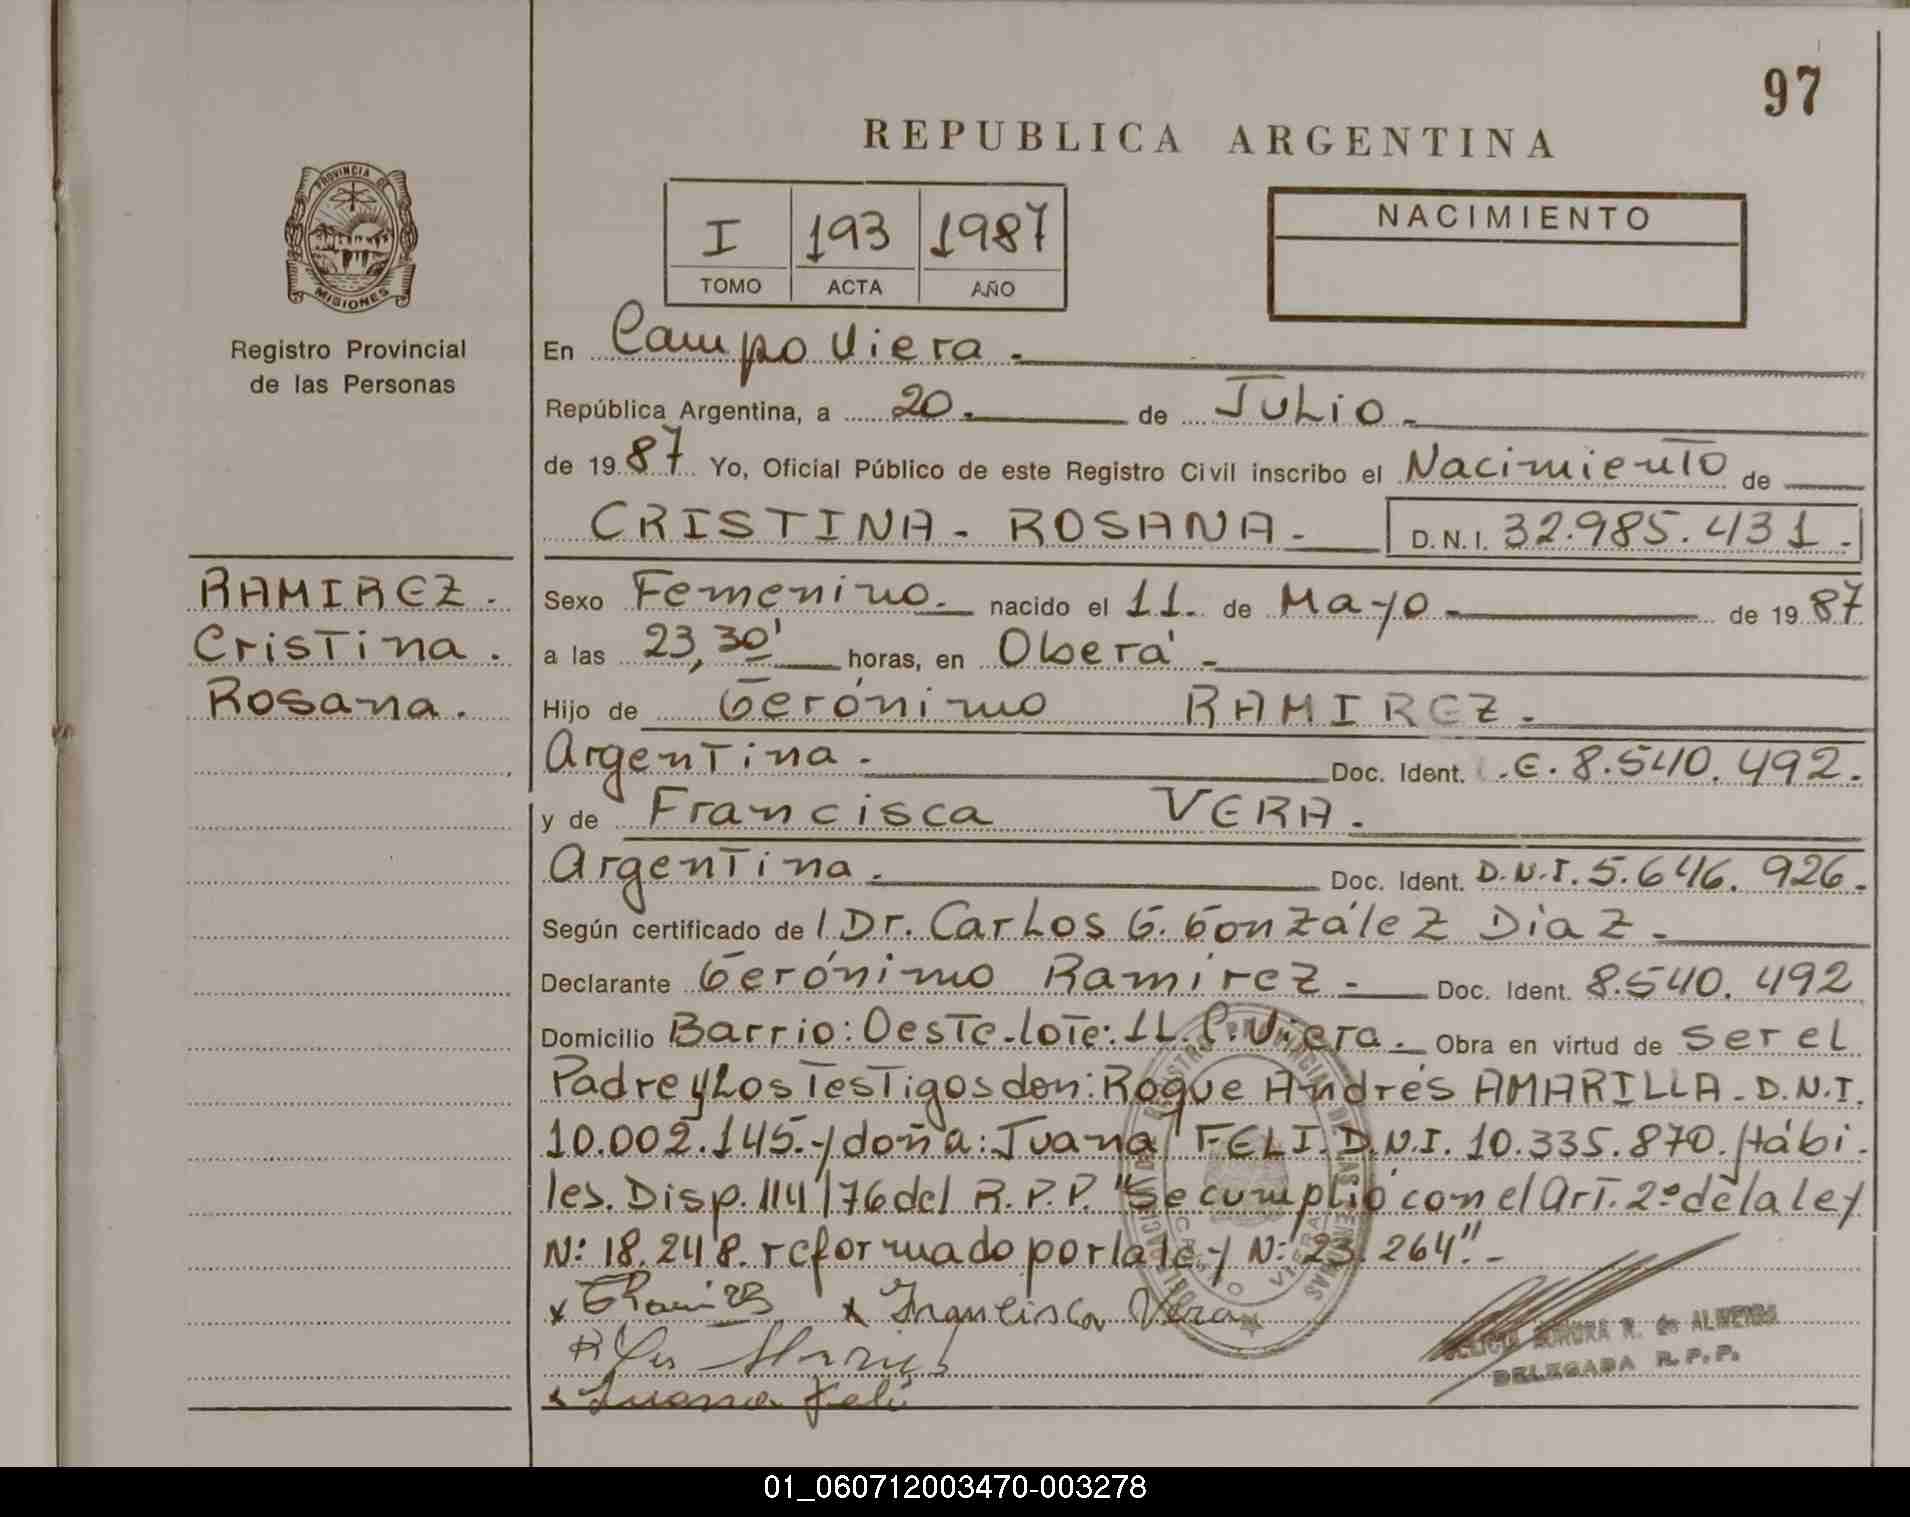 97
REPUBLICA ARGENTINA
PROVINCIA DE
MISIONES
Registro Provincial
de las Personas
I 193 1987
TOMO ACTA AÑO
NACIMIENTO
En Campo Viera.
República Argentina, a 20. de Julio.
de 1987 Yo, Oficial Público de este Registro Civil inscribo el Nacimiento de
CRISTINA - ROSANA. D.N.I. 32.985.431.
RAMIREZ.
Cristina.
Rosana.
Sexo Femenino. nacido el 11. de Mayo. de 1987
a las 23,30' horas, en Oberá.
Hijo de Gerónimo RAMIREZ.
Argentina. Doc. Ident. .E. 8.540.492.
y de Francisca VERA.
Argentina. Doc. Ident. D.N.I. 5.646.926.
Según certificado de l Dr. Carlos G. González Diaz.
Declarante Gerónimo Ramirez. Doc. Ident. 8.540.492
Domicilio Barrio: Oeste-lote: 11. C. Viera. Obra en virtud de ser el
Padre y Los Testigos don: Roque Andrés AMARILLA - D.N.I.
10.002.145.- y doña: Juana FELI. D.N.I. 10.335.870. Hábi-
les. Disp. 114/76 del R.P.P. "Se cumplió con el Art. 2º de la ley
Nº 18.248. reformado por la ley Nº 23.264".-
x GRamirez x Francisca Vera
x Juana Feli
R. de ALMEIDA
DELEGADA R.P.P.
01_060712003470-003278